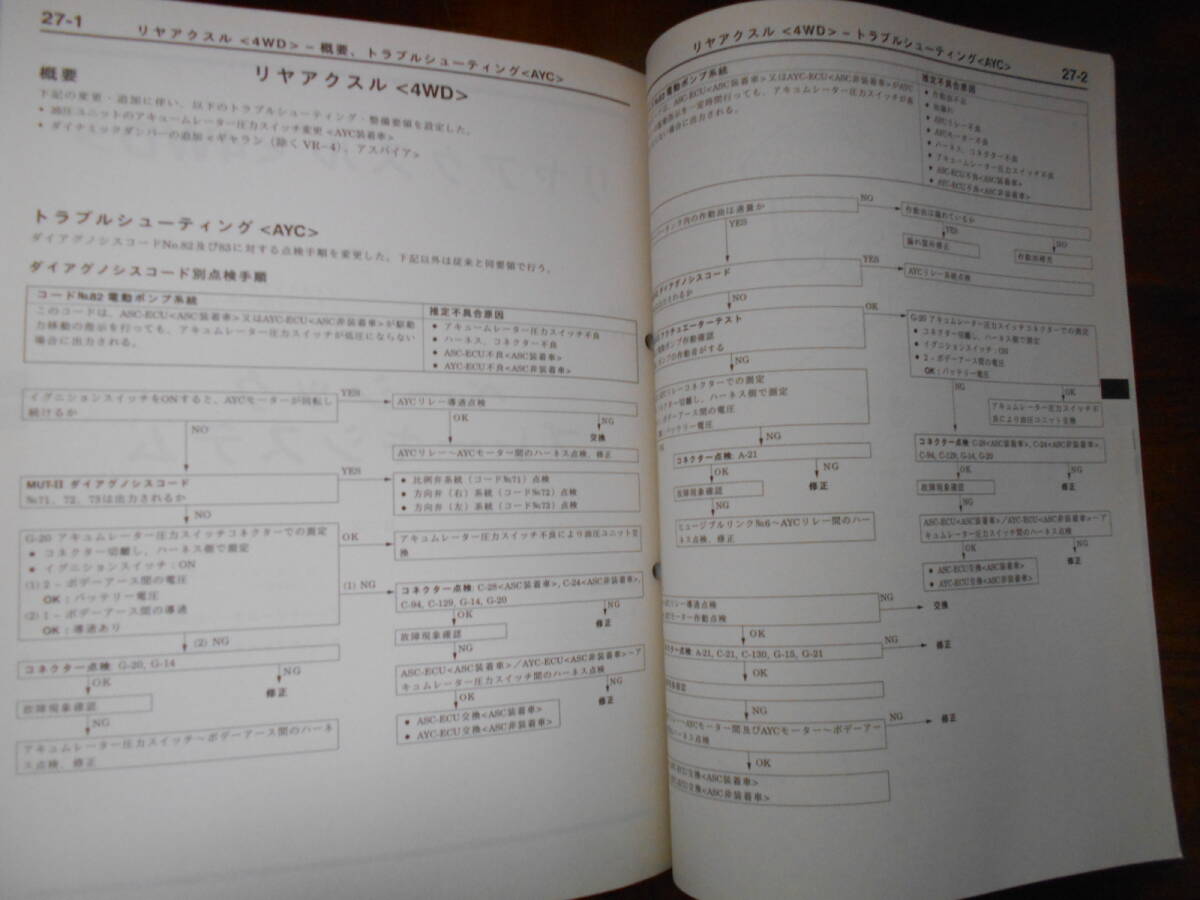 27-1
リヤアクスル <4WD> − 概要、トラブルシューティング<AYC>
リヤアクスル <4WD>
概要
下記の変更・追加に伴い、以下のトラブルシューティング・整備要領を設定した。
• 油圧ユニットのアキュームレーター圧力スイッチ変更 <AYC装着車>
• ダイナミックダンパーの追加 <ギャラン (除く VR-4)、アスパイア>
トラブルシューティング <AYC>
ダイアグノシスコードNo.82及び83に対する点検手順を変更した。下記以外は従来と同要領で行う。
ダイアグノシスコード別点検手順
コード№82 電動ポンプ系統
このコードは、ASC-ECU<ASC装着車>又はAYC-ECU<ASC非装着車>が駆動
力移動の指示を行っても、アキュームレーター圧力スイッチが低圧にならない
場合に出力される。
推定不具合原因
● アキュームレーター圧力スイッチ不良
● ハーネス、コネクター不良
● ASC-ECU不良<ASC装着車>
● AYC-ECU不良<ASC非装着車>
イグニションスイッチをONすると、AYCモーターが回転し
続けるか
YES
AYCリレー導通点検
OK
NG
交換
AYCリレー〜AYCモーター間のハーネス点検、修正
NO
MUT-Ⅱ ダイアグノシスコード
№71、72、73は出力されるか
YES
● 比例弁系統 (コード№71) 点検
● 方向弁 (右) 系統 (コード№72) 点検
● 方向弁 (左) 系統 (コード№73) 点検
NO
G-20 アキュムレーター圧力スイッチコネクターでの測定
● コネクター切離し、ハーネス側で測定
● イグニションスイッチ : ON
(1) 2 − ボデーアース間の電圧
OK : バッテリー電圧
(2) 1 − ボデーアース間の導通
OK : 導通あり
OK
アキュムレーター圧力スイッチ不良により油圧ユニット交
換
(1) NG
コネクター点検: C-28<ASC装着車>, C-24<ASC非装着車>,
C-94, C-129, G-14, G-20
OK
NG
修正
故障現象確認
NG
ASC-ECU<ASC装着車>/AYC-ECU<ASC非装着車>〜ア
キュムレーター圧力スイッチ間のハーネス点検
OK
NG
修正
● ASC-ECU交換<ASC装着車>
● AYC-ECU交換<ASC非装着車>
(2) NG
コネクター点検: G-20, G-14
OK
NG
修正
故障現象確認
NG
アキュムレーター圧力スイッチ〜ボデーアース間のハーネ
ス点検、修正
リヤアクスル <4WD> − トラブルシューティング<AYC>
27-2
電動ポンプ系統
ASC-ECU<ASC装着車>又はAYC-ECU<ASC非装着車>がAYC
一定時間行っても、アキュムレーター圧力スイッチが高
ない場合に出力される。
推定不具合原因
● 作動油不足
● 油漏れ
● AYCリレー不良
● AYCモーター不良
● ハーネス、コネクター不良
● アキュムレーター圧力スイッチ不良
● ASC-ECU不良<ASC装着車>
● AYC-ECU不良<ASC非装着車>
タンク内の作動油は適量か
NO
作動油は漏れているか
YES
漏れ箇所修正
NO
作動油補充
YES
ダイアグノシスコード
されるか
YES
AYCリレー系統点検
NO
アクチュエーターテスト
ポンプ作動確認
ンプの作動音がする
OK
G-20 アキュムレーター圧力スイッチコネクターでの測定
● コネクター切離し、ハーネス側で測定
● イグニションスイッチ : ON
● 2 − ボデーアース間の電圧
OK : バッテリー電圧
OK
アキュムレーター圧力スイッチ不
良により油圧ユニット交換
NG
コネクター点検: C-28<ASC装着車>, C-24<ASC非装着車>,
C-94, C-129, G-14, G-20
OK
NG
修正
故障現象確認
NG
ASC-ECU<ASC装着車>/AYC-ECU<ASC非装着車>〜ア
キュムレーター圧力スイッチ間のハーネス点検
OK
NG
修正
● ASC-ECU交換<ASC装着車>
● AYC-ECU交換<ASC非装着車>
NG
リレーコネクターでの測定
クター切離し、ハーネス側で測定
ボデーアース間の電圧
バッテリー電圧
NG
コネクター点検: A-21
OK
NG
修正
故障現象確認
NG
ヒュージブルリンク№6〜AYCリレー間のハー
ネス点検、修正
リレー導通点検
モーター作動点検
NG
交換
OK
クター点検: A-21, C-21, C-130, G-15, G-21
NG
修正
OK
NG
〜AYCモーター間及びAYCモーター〜ボデーアー
ハーネス点検
NG
修正
OK
交換<ASC装着車>
交換<ASC非装着車>